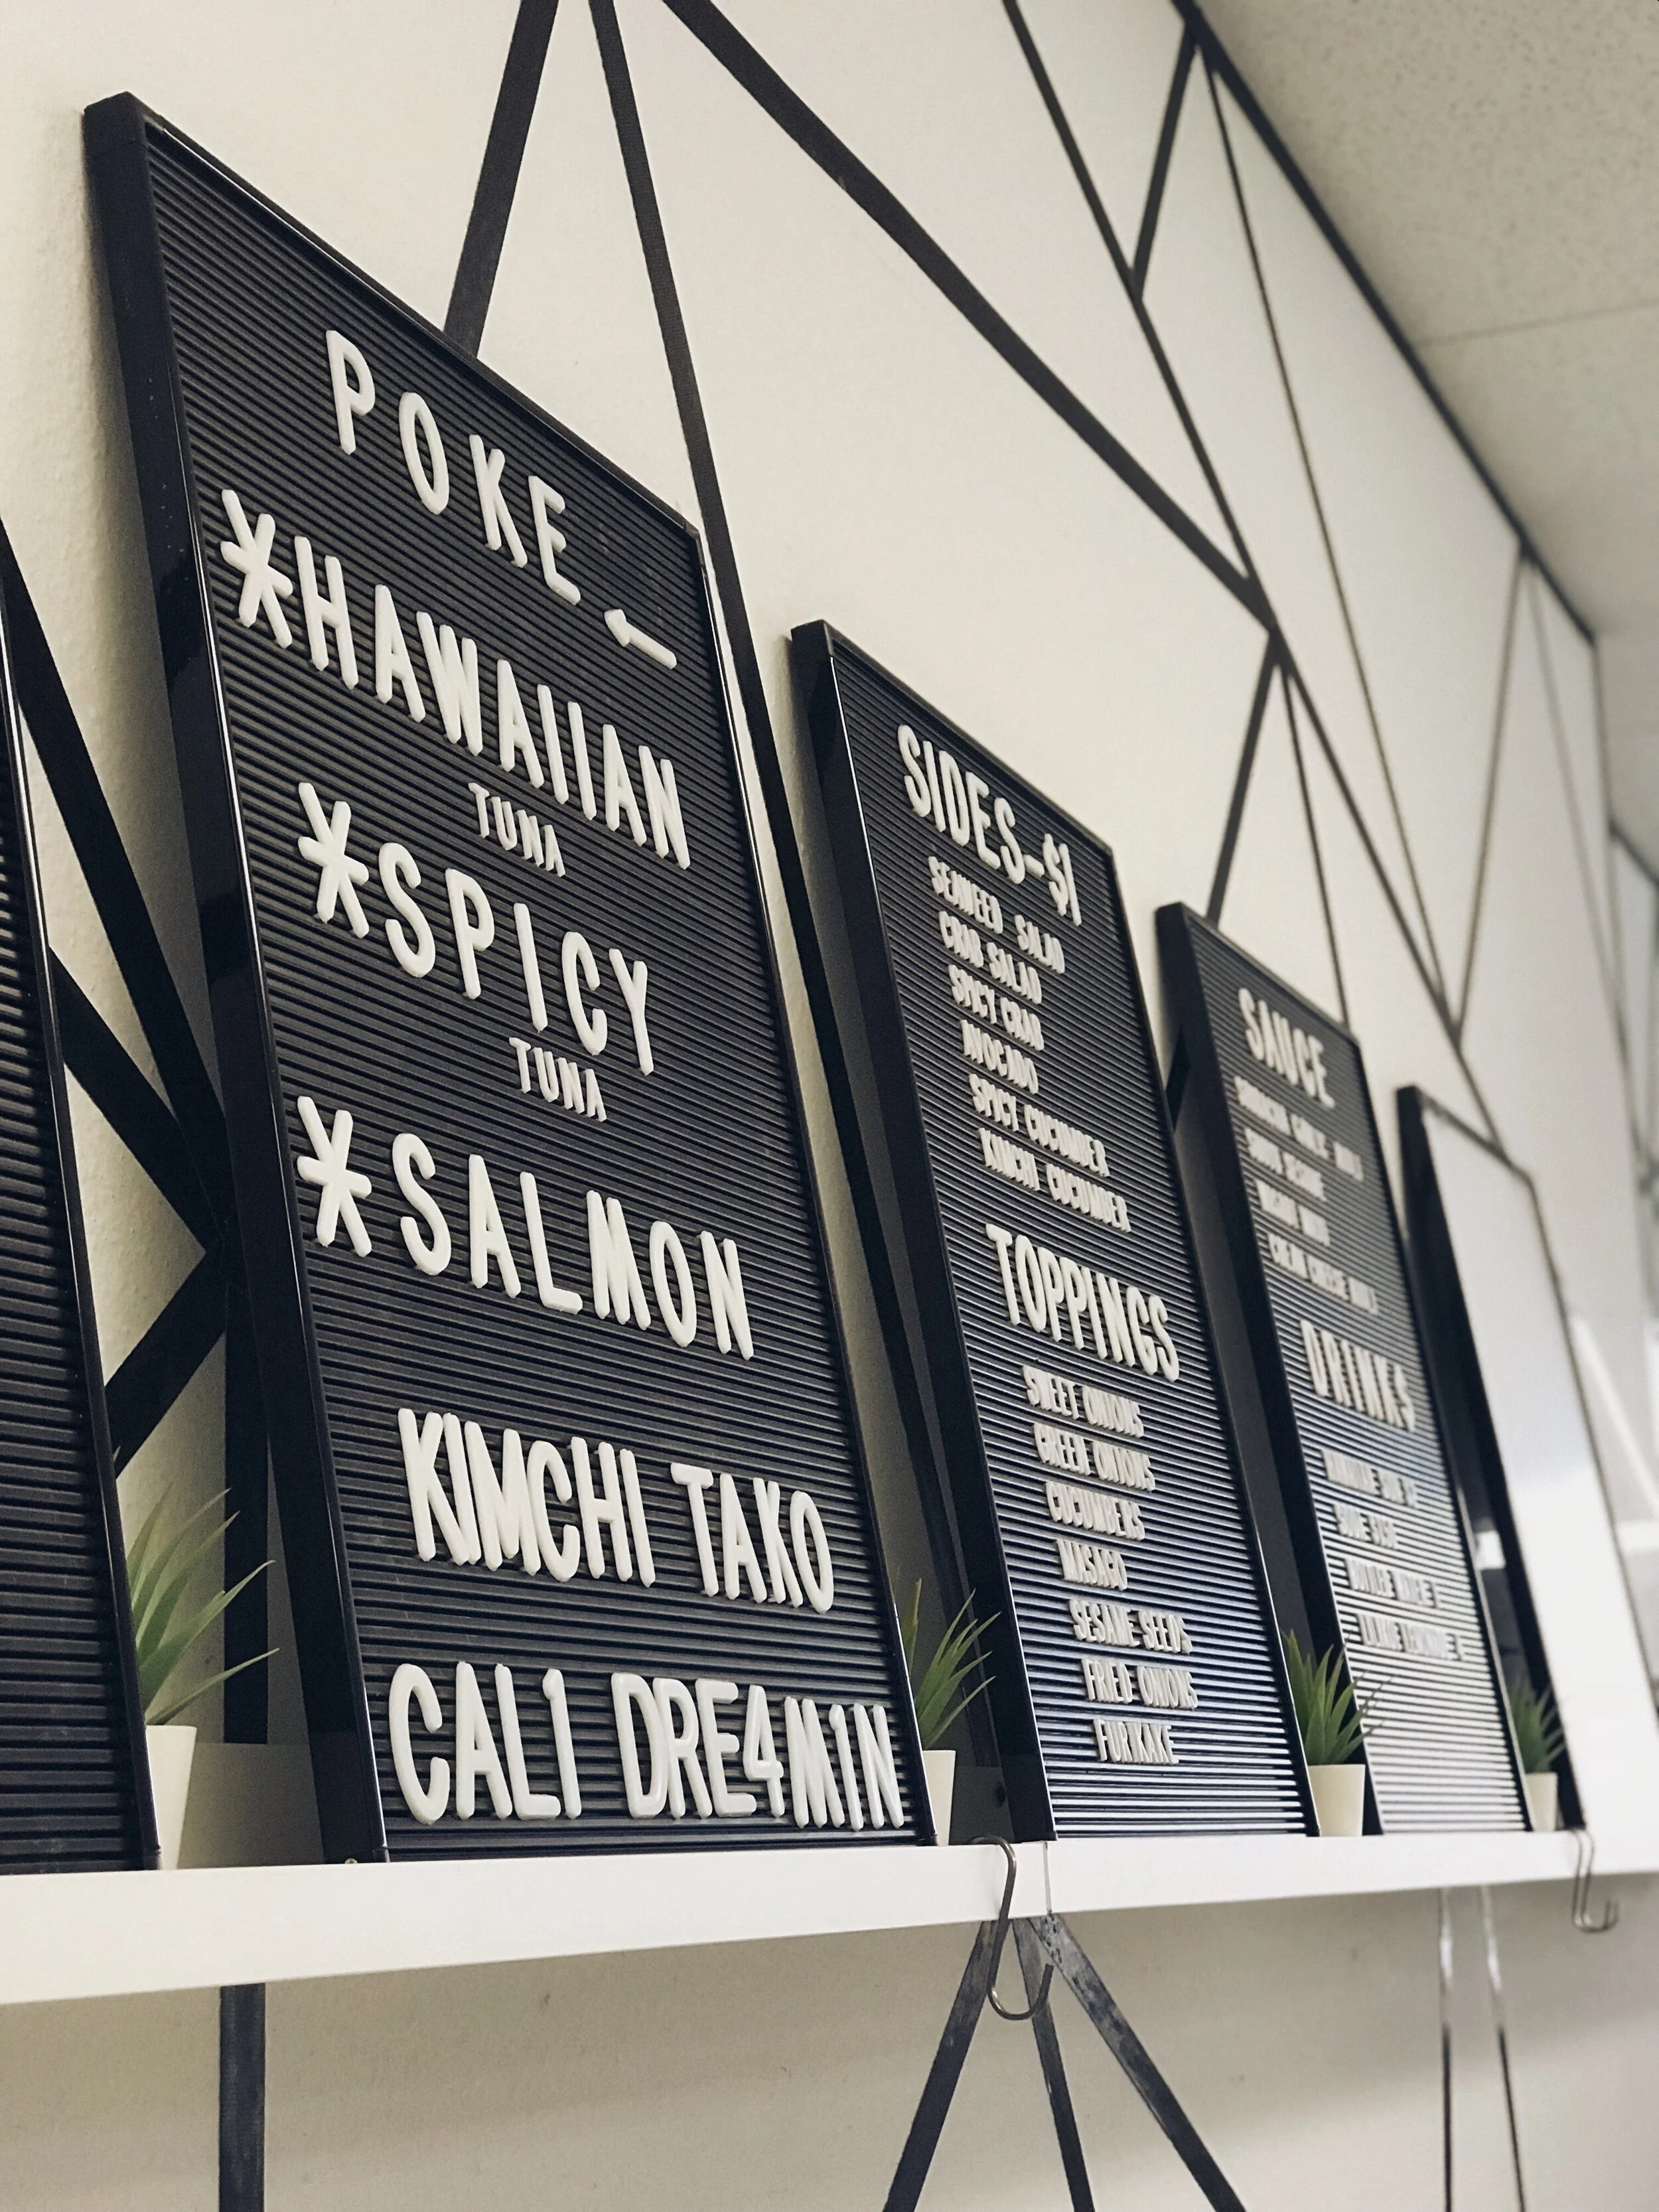 POKE
*HAWAIIAN
TUNA
*SPICY
TUNA
*SALMON
KIMCHI TAKO
CAL1 DRE4M1N
SIDES-$1
SEAWEED SALAD
CRAB SALAD
SPICY CRAB
AVOCADO
SPICY CUCUMBER
KIMCHI CUCUMBER
TOPPINGS
SWEET ONIONS
GREEN ONIONS
CUCUMBERS
MASAGO
SESAME SEEDS
FRIED ONIONS
FURKAKE
SAUCE
DRINKS